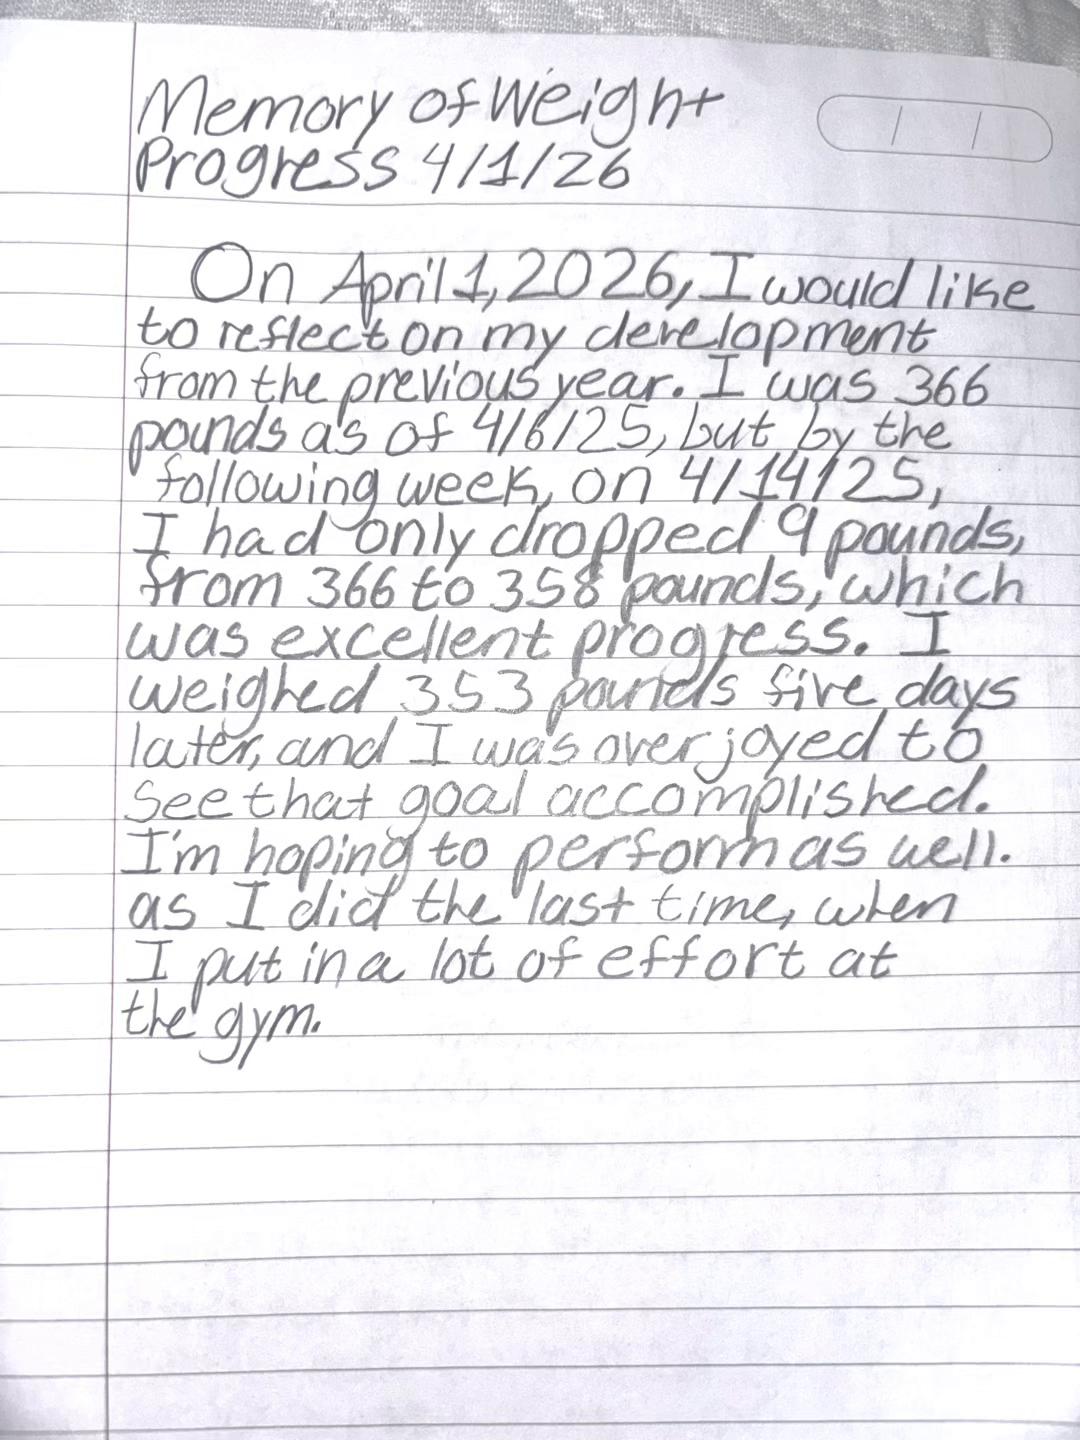 Memory of Weight
Progress 4/1/26
On April 1, 2026, I would like
to reflect on my development
from the previous year. I was 366
pounds as of 4/6/25, but by the
following week, on 4/14/25,
I had only dropped 9 pounds,
from 366 to 358 pounds, which
was excellent progress. I
weighed 353 pounds five days
later, and I was overjoyed to
see that goal accomplished.
I'm hoping to perform as well.
as I did the last time, when
I put in a lot of effort at
the gym.